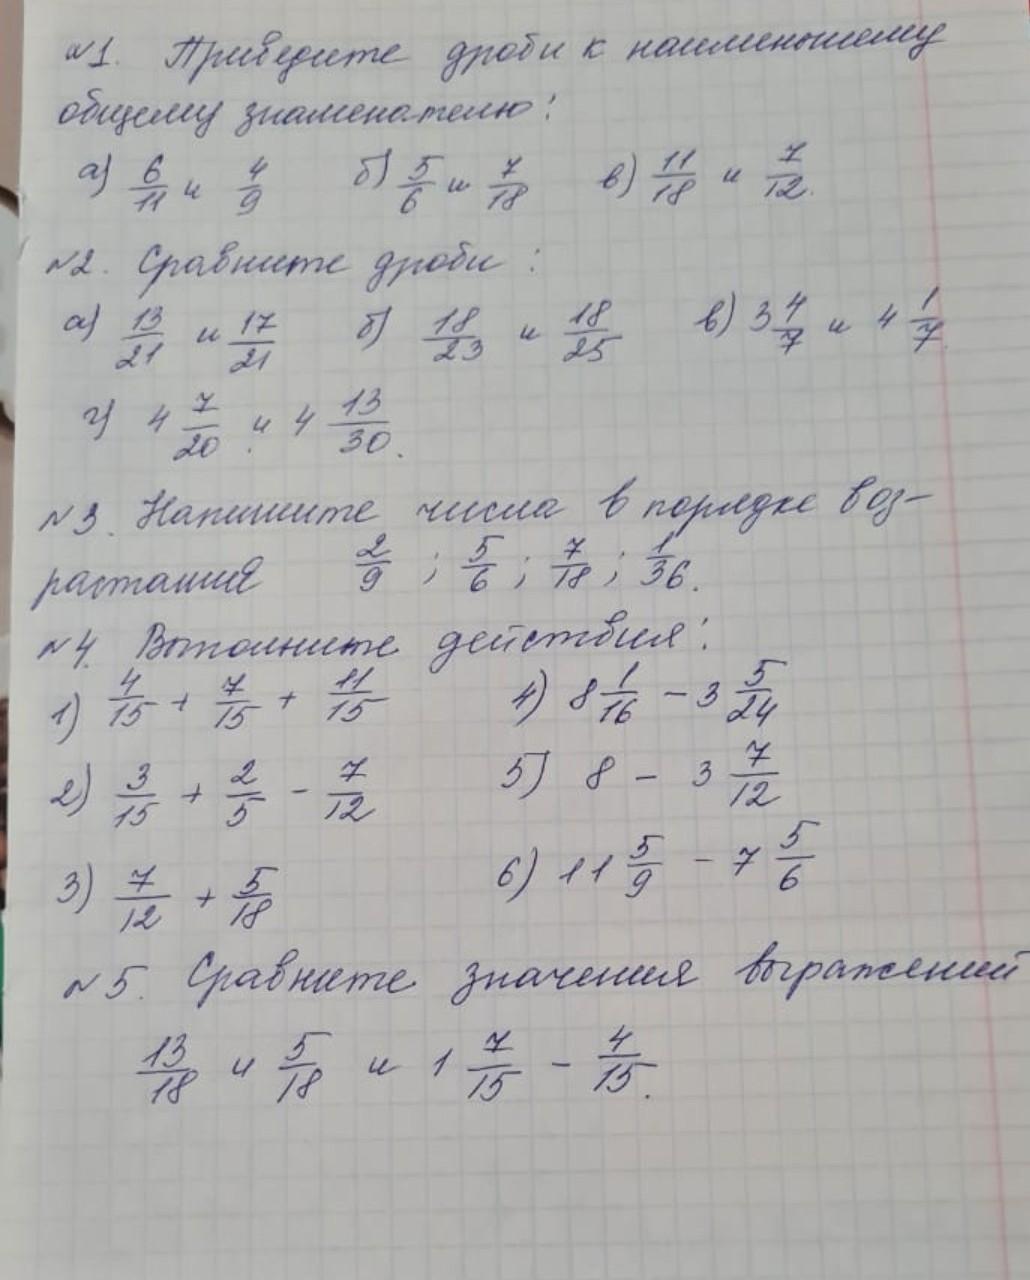 №1. Приведите дроби к наименьшему
общему знаменателю:
а) 6/11 и 4/9 б) 5/6 и 7/18 в) 11/18 и 7/12.
№2. Сравните дроби:
а) 13/21 и 17/21 б) 18/23 и 18/25 в) 3 4/7 и 4 1/7.
г) 4 7/20 и 4 13/30.
№3. Напишите числа в порядке воз-
растания 2/9; 5/6; 7/18; 1/36.
№4. Выполните действия:
1) 4/15 + 7/15 + 11/15 4) 8 1/16 - 3 5/24
2) 3/15 + 2/5 - 7/12 5) 8 - 3 7/12
3) 7/12 + 5/18 6) 11 5/9 - 7 5/6
№5. Сравните значения выражений
13/18 и 5/18 и 1 7/15 - 4/15.